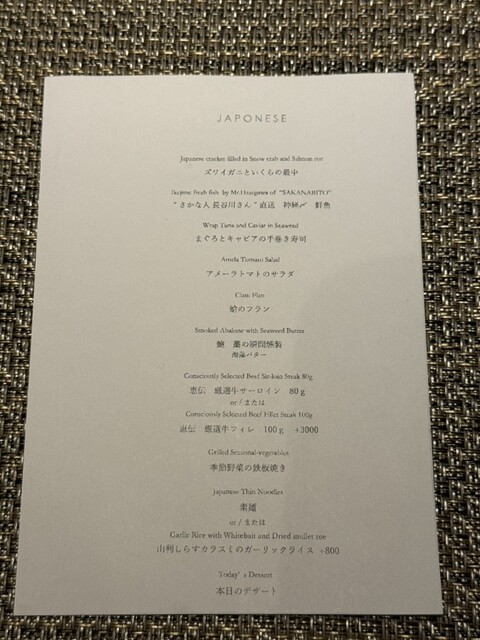 JAPONESE
Japanese cracker filled in Snow crab and Salmon roe
ズワイガニといくらの最中
Ikejime Fresh fish by Mr.Hasegawa of "SAKANABITO"
"さかな人 長谷川さん" 直送 神経〆 鮮魚
Wrap Tuna and Caviar in Seaweed
まぐろとキャビアの手巻き寿司
Amela Tomato Salad
アメーラトマトのサラダ
Clam Flan
蛤のフラン
Smoked Abalone with Seaweed Butter
鮑 藁の瞬間燻製
海藻バター
Consciously Selected Beef Sir-loin Steak 80g
恵伝 厳選牛サーロイン 80g
or / または
Consciously Selected Beef Fillet Steak 100g
恵伝 厳選牛フィレ 100g +3000
Grilled Seasonal-vegetables
季節野菜の鉄板焼き
Japanese Thin Noodles
素麺
or / または
Garlic Rice with Whitebait and Dried mullet roe
山利しらすカラスミのガーリックライス +800
Today's Dessert
本日のデザート